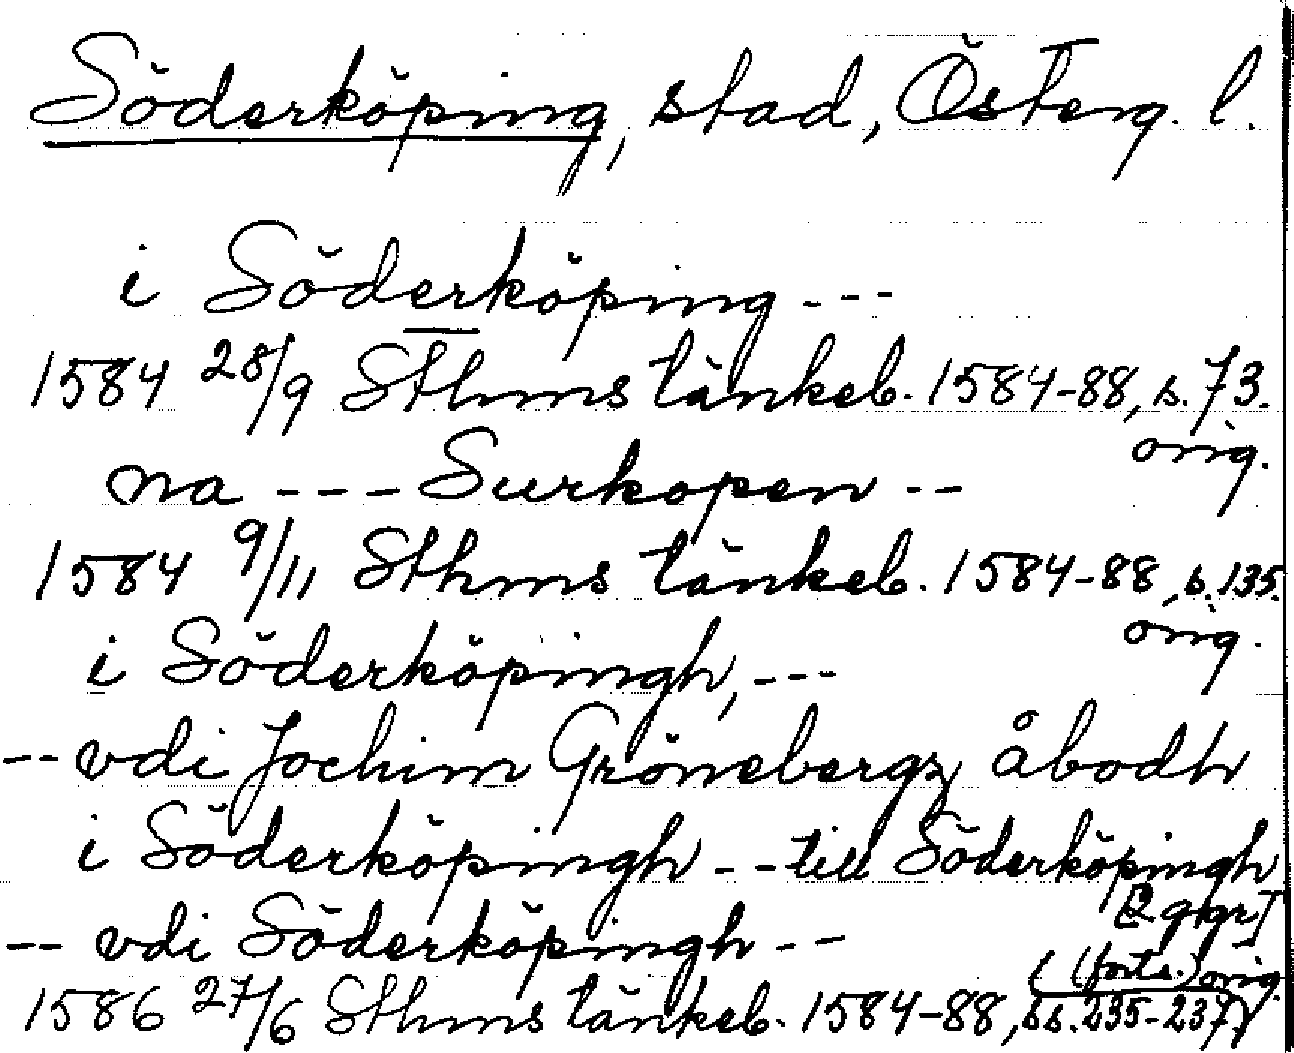 Söderköping, stad, Österg. l.
i Söderköping ---
1584 28/9 Sthms tänkeb. 1584-88, s. 73.
orig.
na --- Surkopen --
1584 9/11 Sthms tänkeb. 1584-88, s. 135.
orig.
i Söderköpingh, ---
-- vdi Jochim Grönebergz åbodh
i Söderköpingh -- till Söderköpingh
[2 ggr]
-- vdi Söderköpingh --
(forts.) orig.
1586 27/6 Sthms tänkeb. 1584-88, ss. 235-237